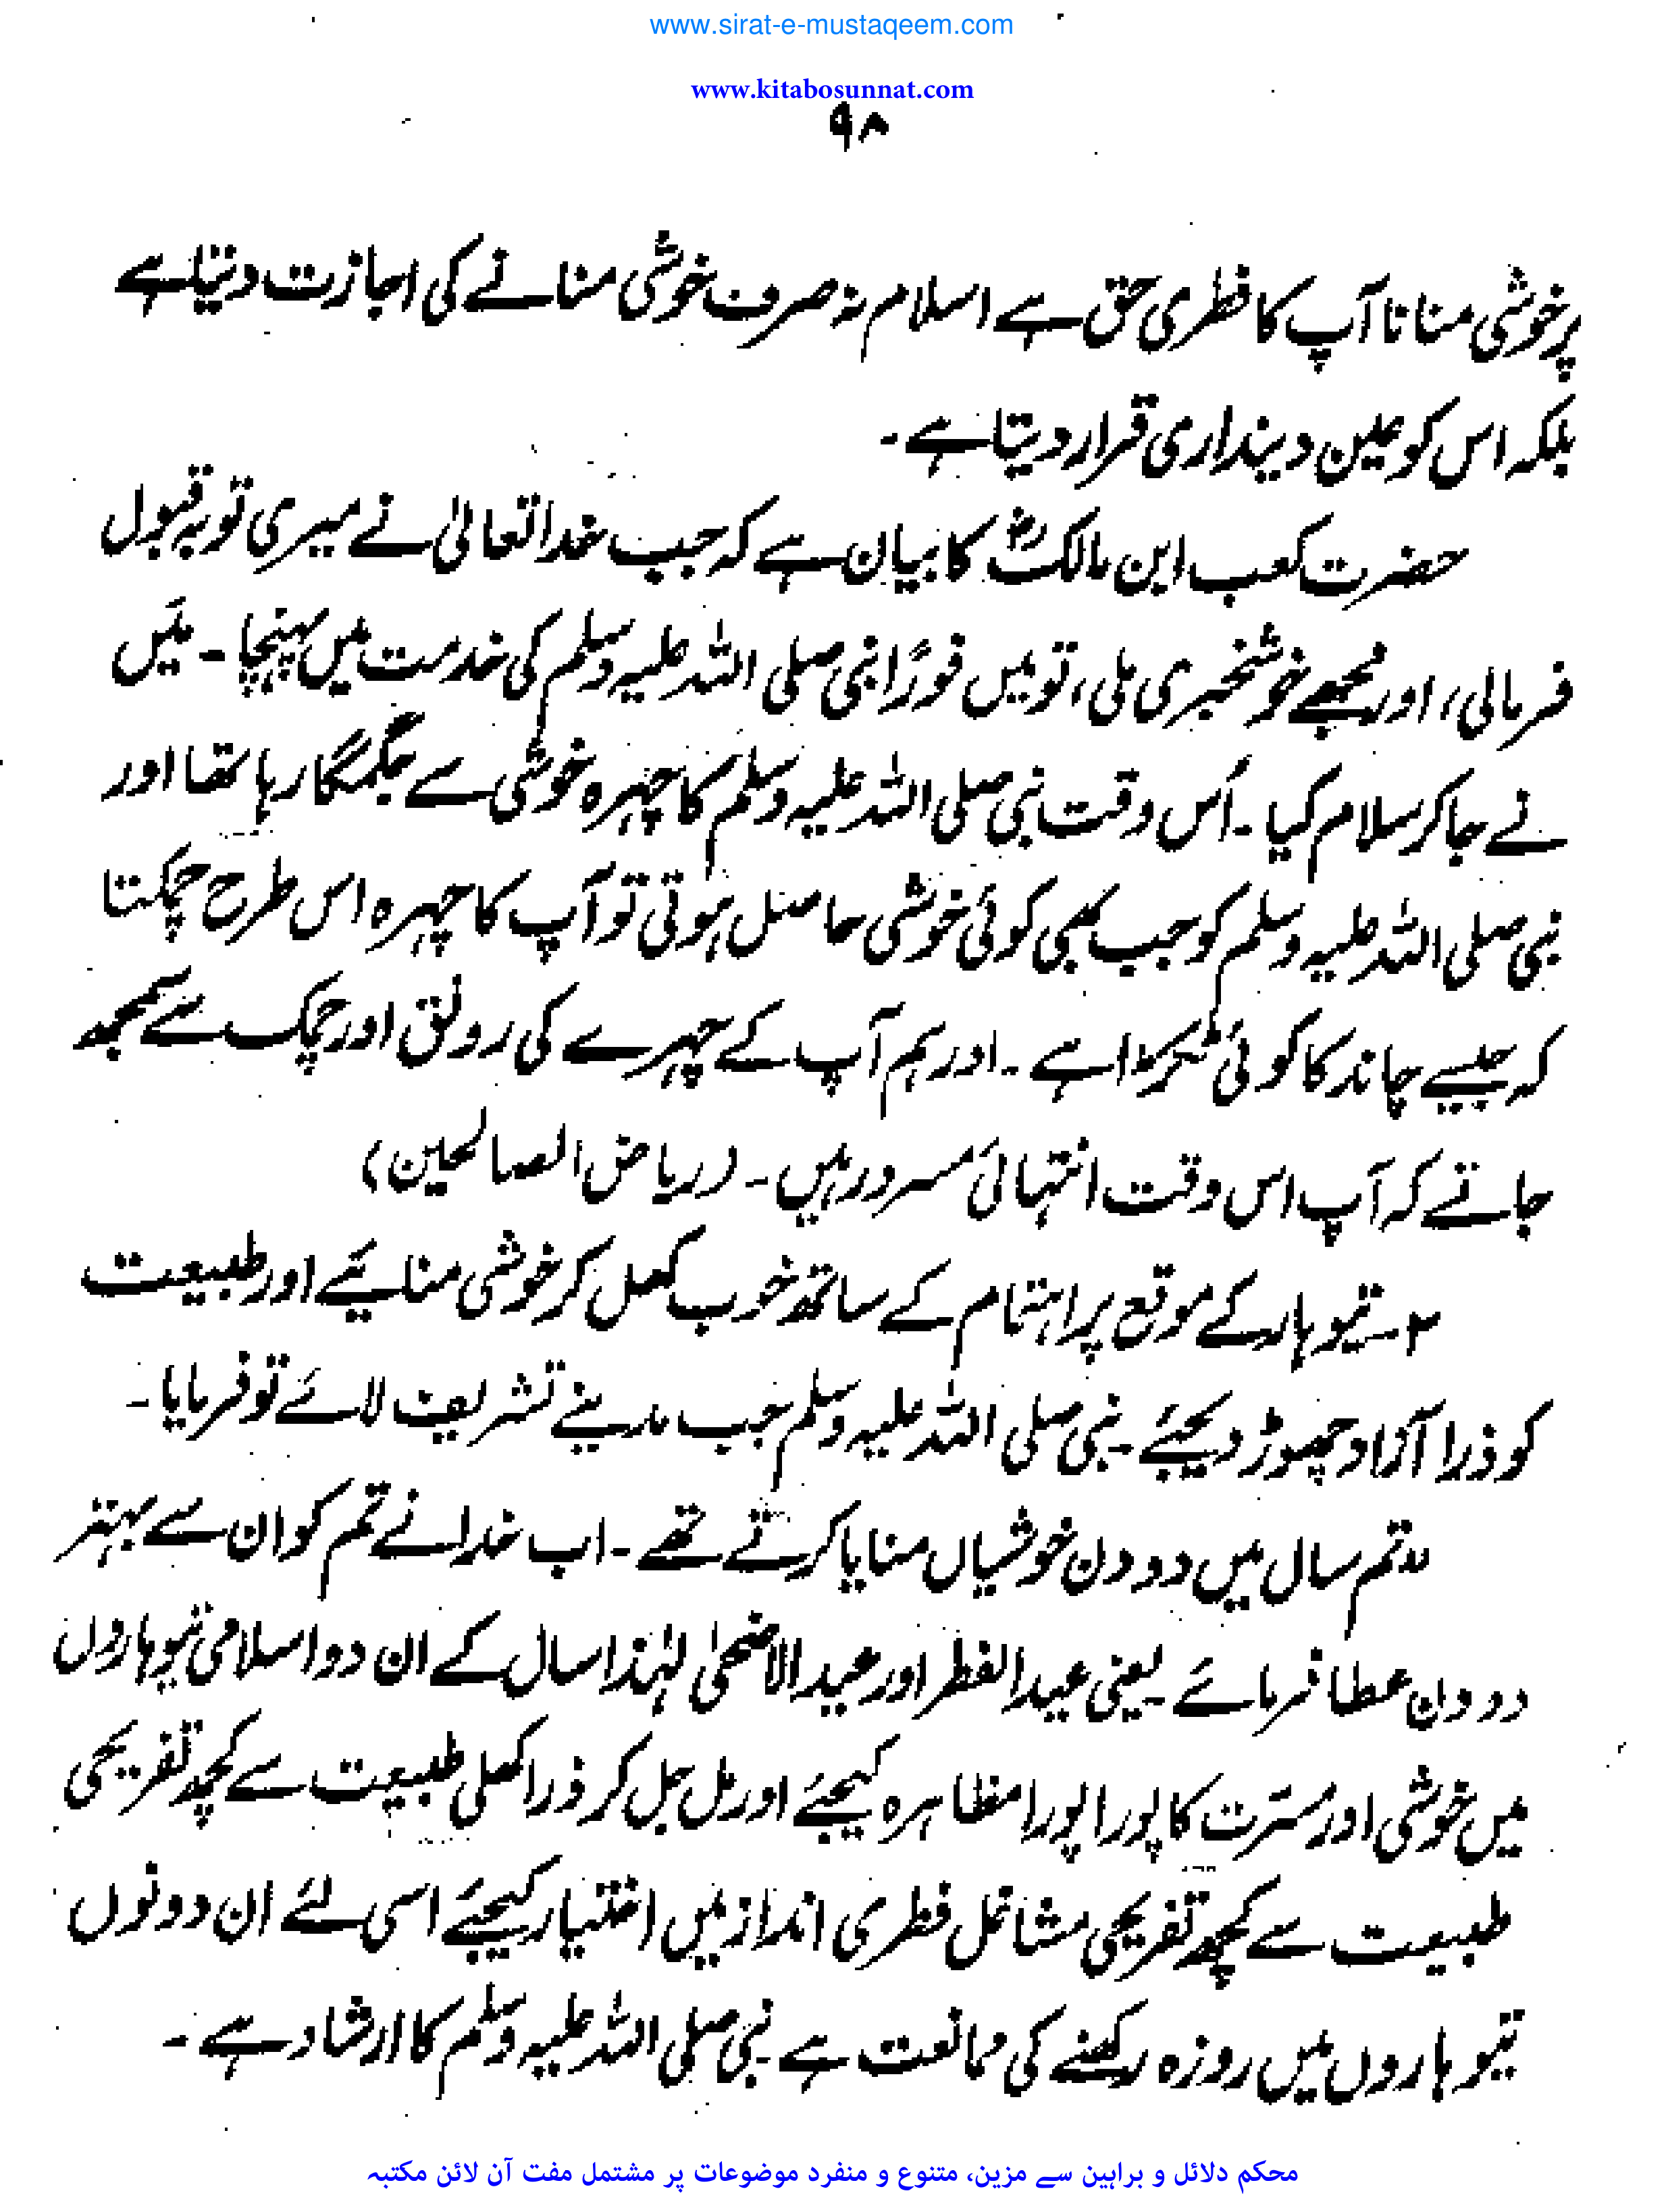 www.sirat-e-mustaqeem.com
www.kitabosunnat.com
۹۸
پر خوشی منانا آپ کا فطری حق ہے اسلام نہ صرف خوشی منانے کی اجازت دیتا ہے
بلکہ اس کو عین دینداری قرار دیتا ہے ۔
حضرت کعب ابن مالکؓ کا بیان ہے کہ جب خدا تعالیٰ نے میری توبہ قبول
فرمالی، اور مجھے خوشخبری ملی، تو میں فورًا نبی صلی اللہ علیہ وسلم کی خدمت میں پہنچا ۔ مَیں
نے جا کر سلام کیا ۔ اُس وقت نبی صلی اللہ علیہ وسلم کا چہرہ خوشی سے جگمگا رہا تھا اور
نبی صلی اللہ علیہ وسلم کو جب بھی کوئی خوشی حاصل ہوتی تو آپ کا چہرہ اس طرح چمکتا
کہ جیسے چاند کا کوئی ٹکڑا ہے ۔ اور ہم آپ کے چہرے کی رونق اور چمک سے سمجھ
جاتے کہ آپ اس وقت انتہائی مسرور ہیں ۔ (ریاض الصالحین)
۲۔ تیوہار کے موقع پر اہتمام کے ساتھ خوب کھل کر خوشی منائیے اور طبیعت
کو ذرا آزاد چھوڑ دیجئے ۔ نبی صلی اللہ علیہ وسلم جب مدینے تشریف لائے تو فرمایا ۔
"تم سال میں دو دن خوشیاں منایا کرتے تھے ۔ اب خدا نے تم کو ان سے بہتر
دو دن عطا فرمائے ۔ یعنی عید الفطر اور عید الاضحیٰ لہٰذا سال کے ان دو اسلامی تیوہاروں
میں خوشی اور مسرّت کا پورا پورا مظاہرہ کیجئے اور مل جل کر ذرا کھلی طبیعت سے کچھ تفریحی
طبیعت سے کچھ تفریحی مشاغل فطری انداز میں اختیار کیجئے اسی لئے ان دونوں
تیوہاروں میں روزہ رکھنے کی ممانعت ہے ۔ نبی صلی اللہ علیہ وسلم کا ارشاد ہے ۔
محکم دلائل و براہین سے مزین، متنوع و منفرد موضوعات پر مشتمل مفت آن لائن مکتبہ